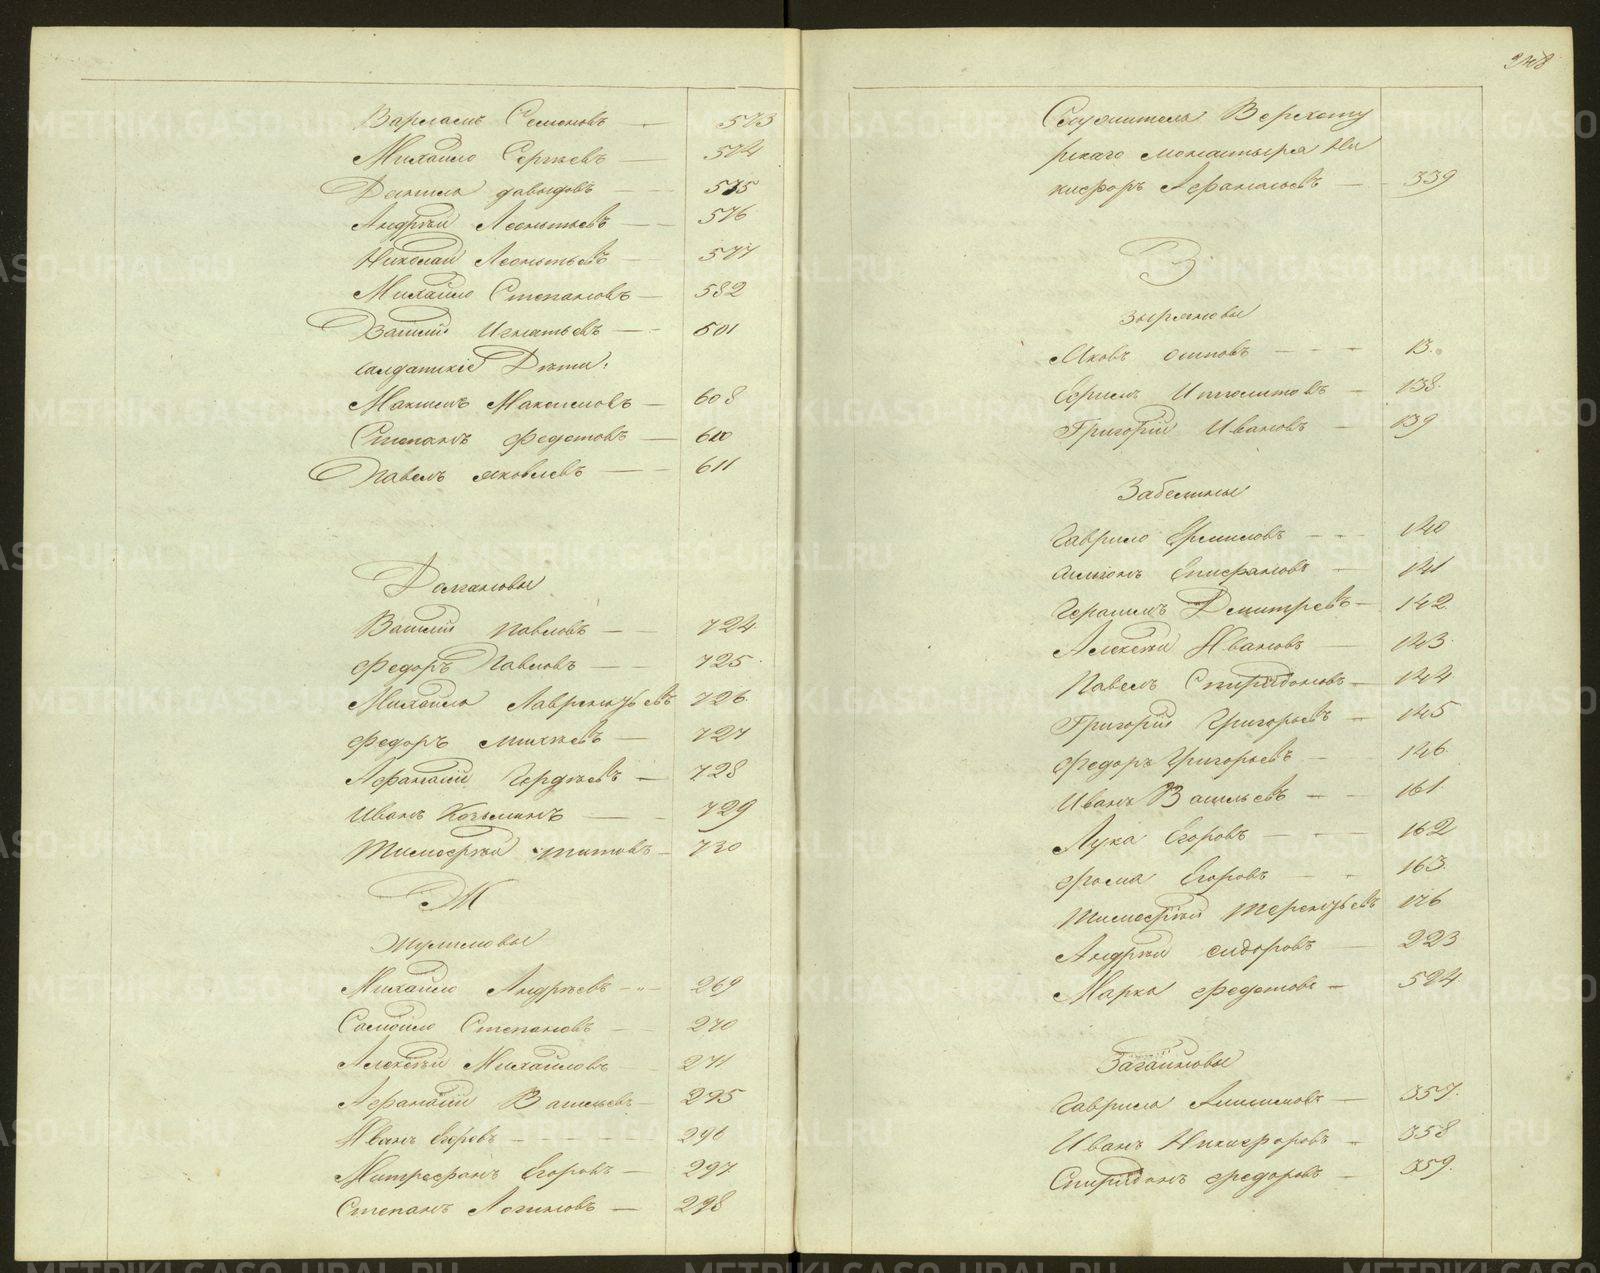 Варламъ Семеновъ — 573
Михайло Сергѣевъ — 574
Данило Давыдовъ — 575
Андрѣй Леонтьевъ — 576
Николай Леонтьевъ — 577
Михайло Степановъ — 582
Василий Игнатьевъ — 601
салдатскіе Дѣти:
Максимъ Максимовъ — 608
Степанъ Федотовъ — 610
Павелъ Яковлевъ — 611
Долгановы
Василий Павловъ — 724
Федоръ Павловъ — 725
Михайло Лаврентьевъ 726
Федоръ Михѣевъ — 727
Афанасий Гордѣевъ — 728
Иванъ Козьминъ — 729
Тимофѣй Титовъ — 730
Ж
Жулимовы
Михайло Андрѣевъ — 269
Самойло Степановъ — 270
Алексѣй Михайловъ — 271
Афанасий Васильевъ — 295
Иванъ Егоровъ — 296
Митрофанъ Егоровъ — 297
Степанъ Логиновъ — 298
348
Служитель Верхоту
рскаго монастыря Ни
кифоръ Афанасьевъ — 339
З
Зыряновы
Яковъ Осиповъ — 13.
Ефимъ Ипполитовъ — 138.
Григорій Ивановъ — 139
Забелины
Гаврило Ермиловъ — 140
Епифановъ — 141
Герасимъ Дмитревъ — 142
Алексѣй Ивановъ — 143
Павелъ Спиридоновъ — 144
Григорій Григорьевъ — 145
Федоръ Григорьевъ — 146
Иванъ Васильевъ — 161.
Лука Егоровъ — 162
Фома Егоровъ — 163.
Тимофѣй Терентьевъ 176
Андрѣй Сидоровъ — 223
Марко Федотовъ — 524
Загайновы
Гаврило Анисимовъ — 357.
Иванъ Никифоровъ — 358
Спиридонъ Федоровъ — 359.
METRIKI.GASO-URAL.RU